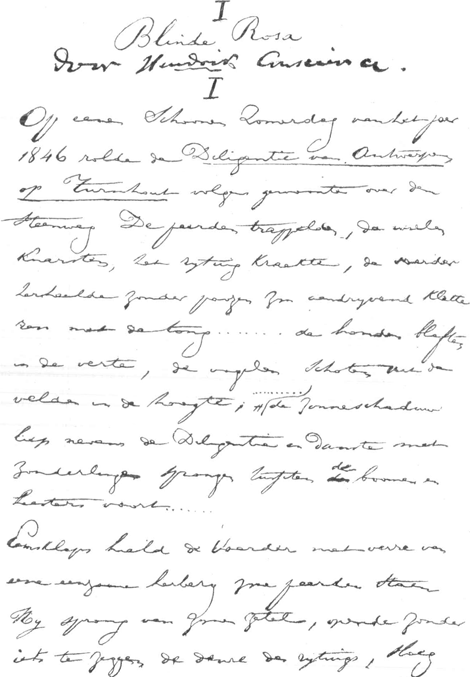 I
Blinde Rosa
Door Hendrik Conscience.
I
Op eenen Schoonen Zomerdag van het jaer
1846 rolde de Diligentie van Antwerpen
op Turnhout volgens gewoonte over den
Steenweg De peerden trappelden, de wielen
Knarsten, het rytuig Kraekte, de voerder
herhaelde zonder poozen zyn aendryvend Klette
ren met de tong ........ de honden bleften
in de verte, de vogelen Schoten uit de
velden in de hoogte; de Zonneschaduw
liep nevens de Diligentie en danste met
Zonderlinge sprongen tusschen de boomen en
heesters voort......
Eensklaps hield de Voerder niet verre van
eene eenzame herberg zyne peerden staen
Hy sprong van zynen zetel, opende zonder
iets te zeggen de deure des rytuigs, sloeg